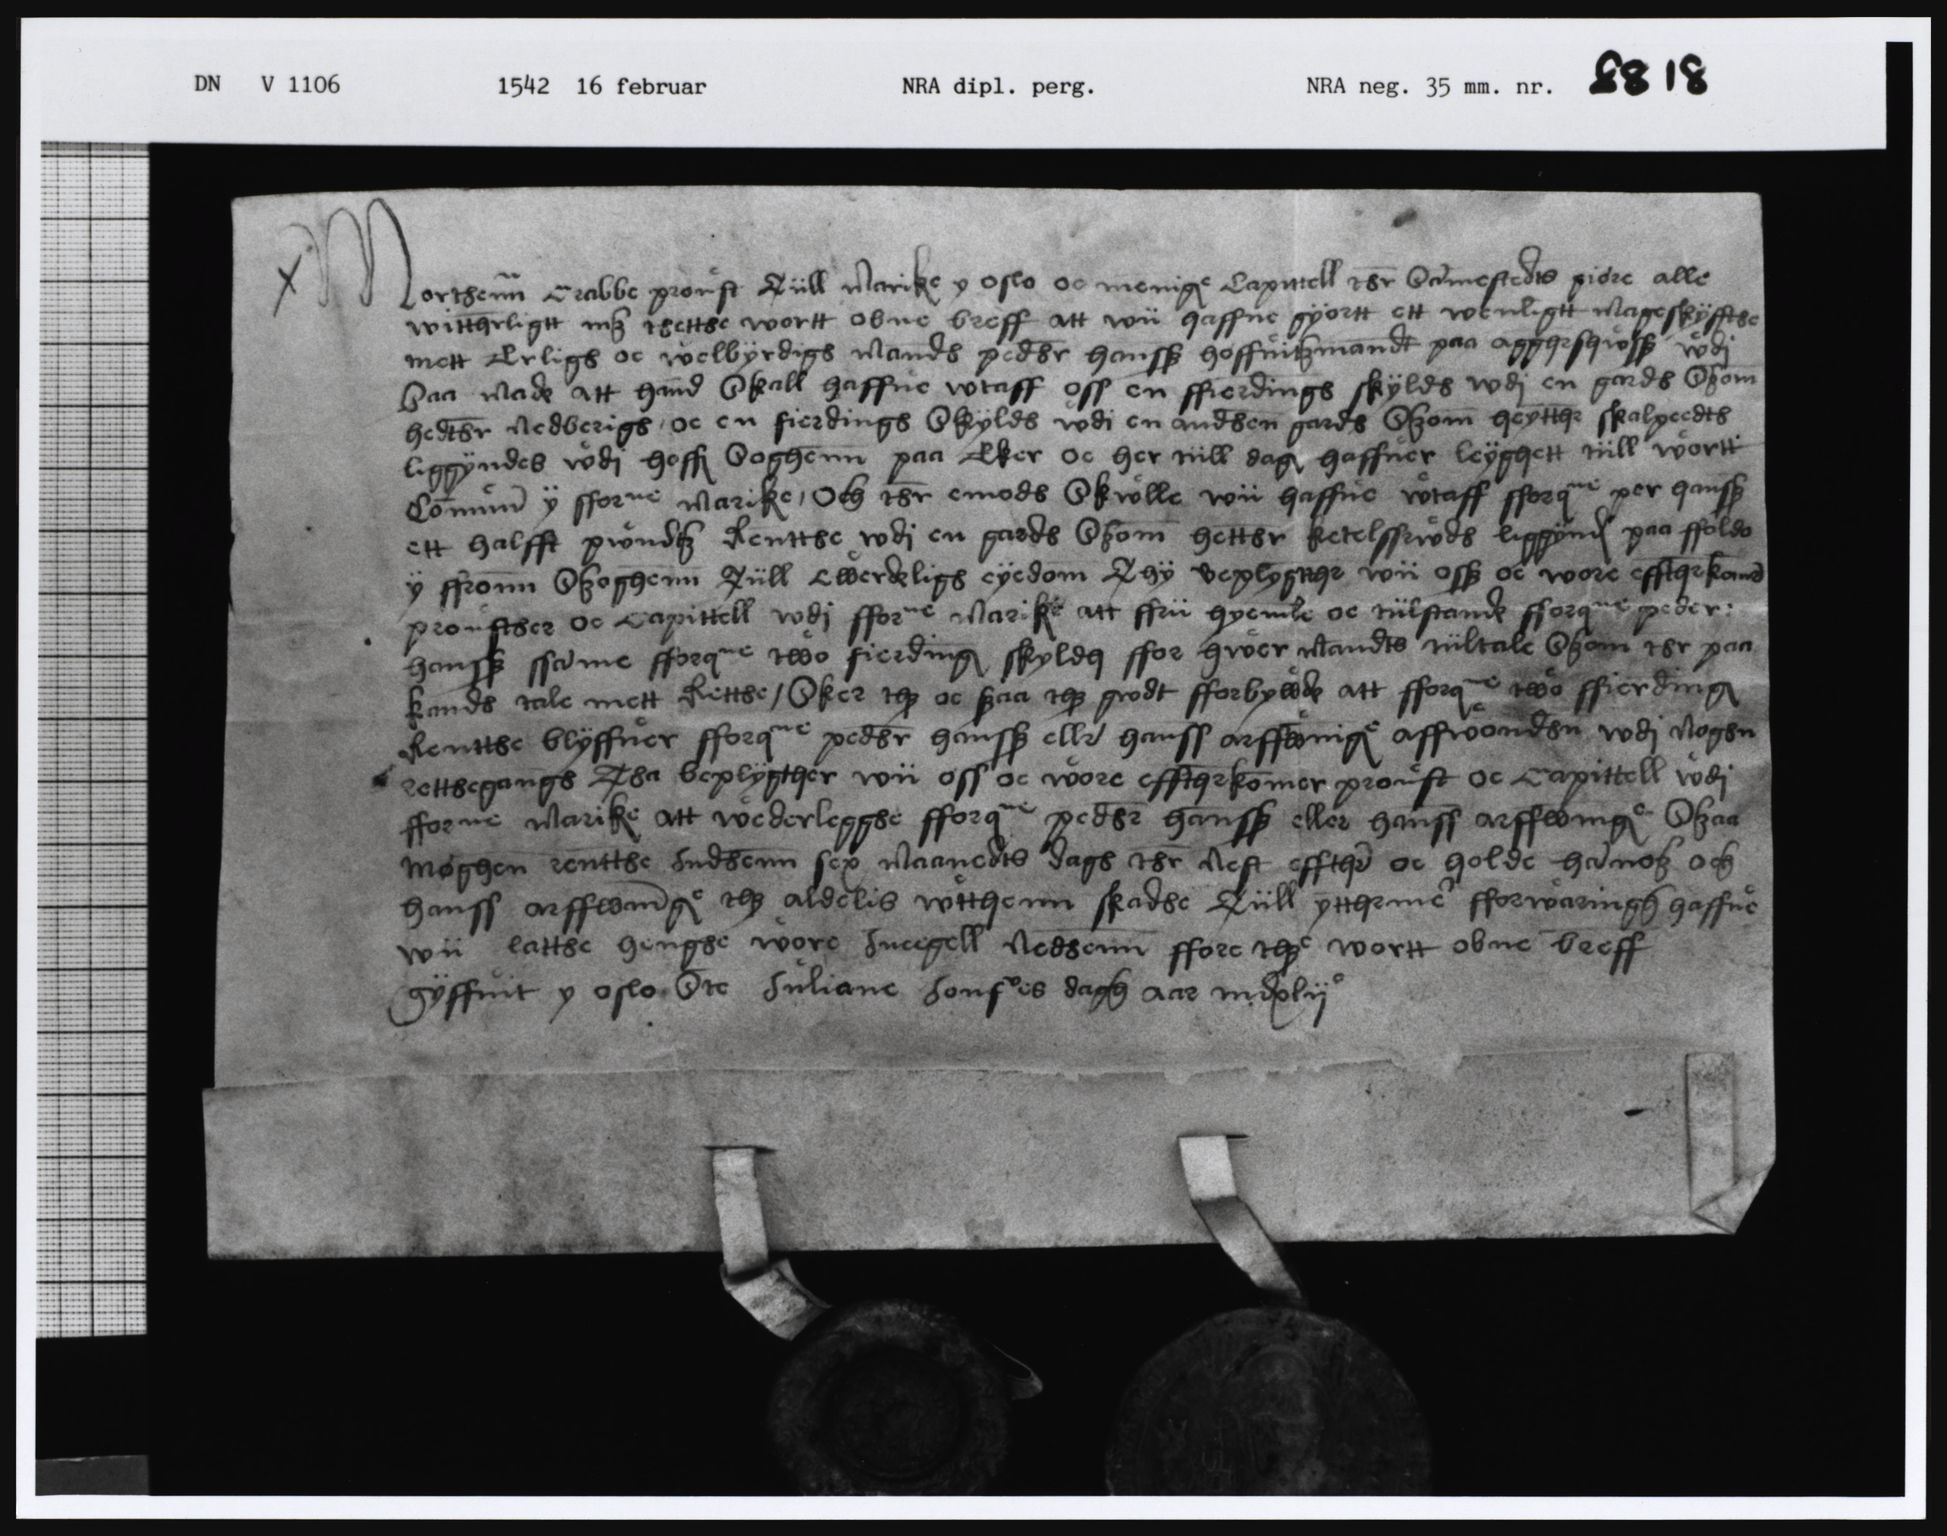 DN V 1106 1542 16 februar NRA dipl. perg. NRA neg. 35 mm. nr. 8818
Morthenn Crabbe proust Tiill Marike y oslo oc menige Capittell ther Sammestedts giøre alle
witterligtt mz thetthe wortt obne breff att wii haffue gyortt ett wenligtt mageskyffthe
mett Erlige oc welbyrdige mandt pedher hanssz hoffuitzmandt paa aggherhwssz wdj
Saa made att hand Skall haffue wtaff oss en ffierdinge skylde wdj en garde Szom
hedther nedberige oc en fierdinge Skylde wdi en andhen garde Szom heytther skalgeedts
liggyndes wdj hoff Soghenn paa Eker oc her tiill dag haffuer leyghett tiill wortt
Comun y fforne marike, Och ther emode Skwlle wii haffue wtaff fforne per hanssz
ett halfft pwndz Rentthe wdj en garde Szom hetther ketelssrwde liggynd paa ffoldo
y ffronn Szoghenn Tiill Ewerdelige eyedom Thy beplygther wii ossz oc wore efftherkomd
prousther oc Capittell wdj fforne Marike att frii hyemle oc tiilstande fforne peder:
hanssz ssamme fforne two fierding skyld ffor hwer mandts tiiltale Szom ther paa
kande tale mett Retthe, Sker thz oc szaa thz gwdt fforbywde att fforne two ffierding
Rentthe blyffuer fforne pedher hanssz eller hanss arffwinge affwondhen wdj noghen
retthegange Tha beplygther wii oss oc wore efftherkomer proust oc Capittell wdj
fforne Marike att wederlegghe fforne pedher hanssz eller hanss arffwinge Szaa
møghen rentthe Indhenn sex maanedts dage ther nest effther oc holde hanom och
hanss arffwinge thz aldelis wtthenn skadhe Tiill yttherme fforwaringh haffue
wii latthe henghe wore Incegell nedhenn ffore thze wortt obne breff
Gyffuit y oslo Ste Juliane dagh aar mdxlijo